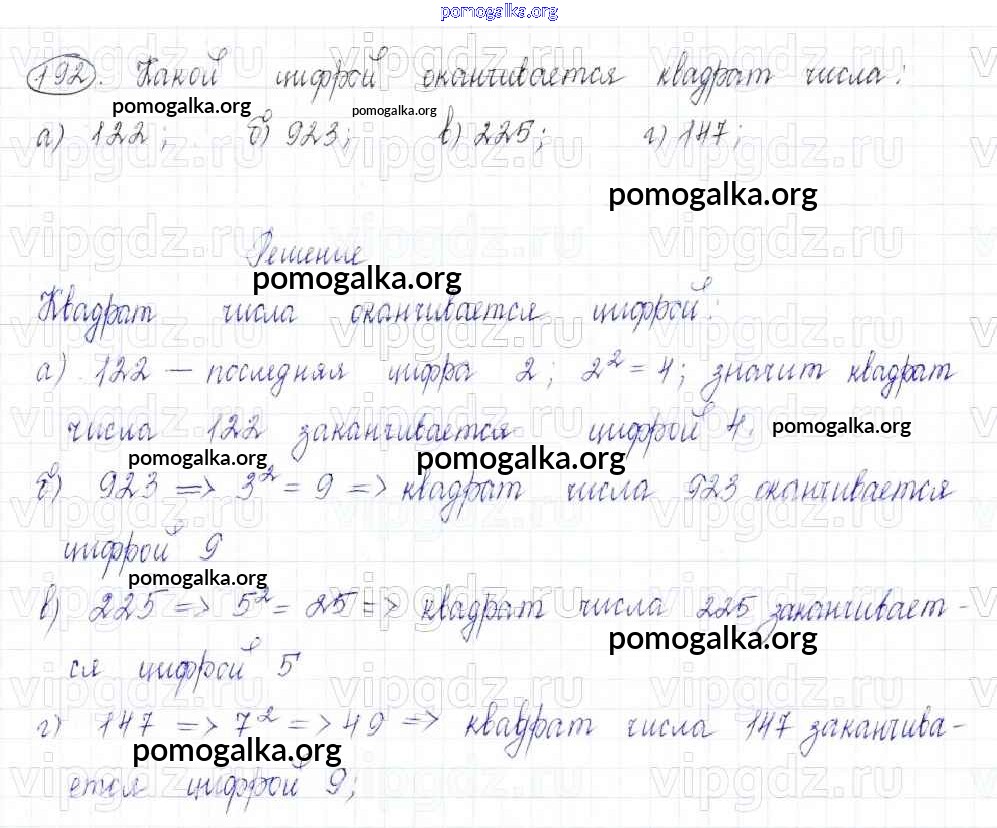 pomogalka.org
192. Какой цифрой оканчивается квадрат числа:
pomogalka.org pomogalka.org
а) 122; б) 923; в) 225; г) 147;
pomogalka.org
Решение
pomogalka.org
Квадрат числа оканчивается цифрой:
а) 122 — последняя цифра 2; 2² = 4; значит квадрат
числа 122 заканчивается цифрой 4.
pomogalka.org
pomogalka.org pomogalka.org
б) 923 => 3² = 9 => квадрат числа 923 оканчивается
цифрой 9
pomogalka.org
в) 225 => 5² = 25 => квадрат числа 225 заканчивает-
pomogalka.org
ся цифрой 5
г) 147 => 7² => 49 => квадрат числа 147 заканчива-
pomogalka.org
ется цифрой 9;
vipgdz.ru